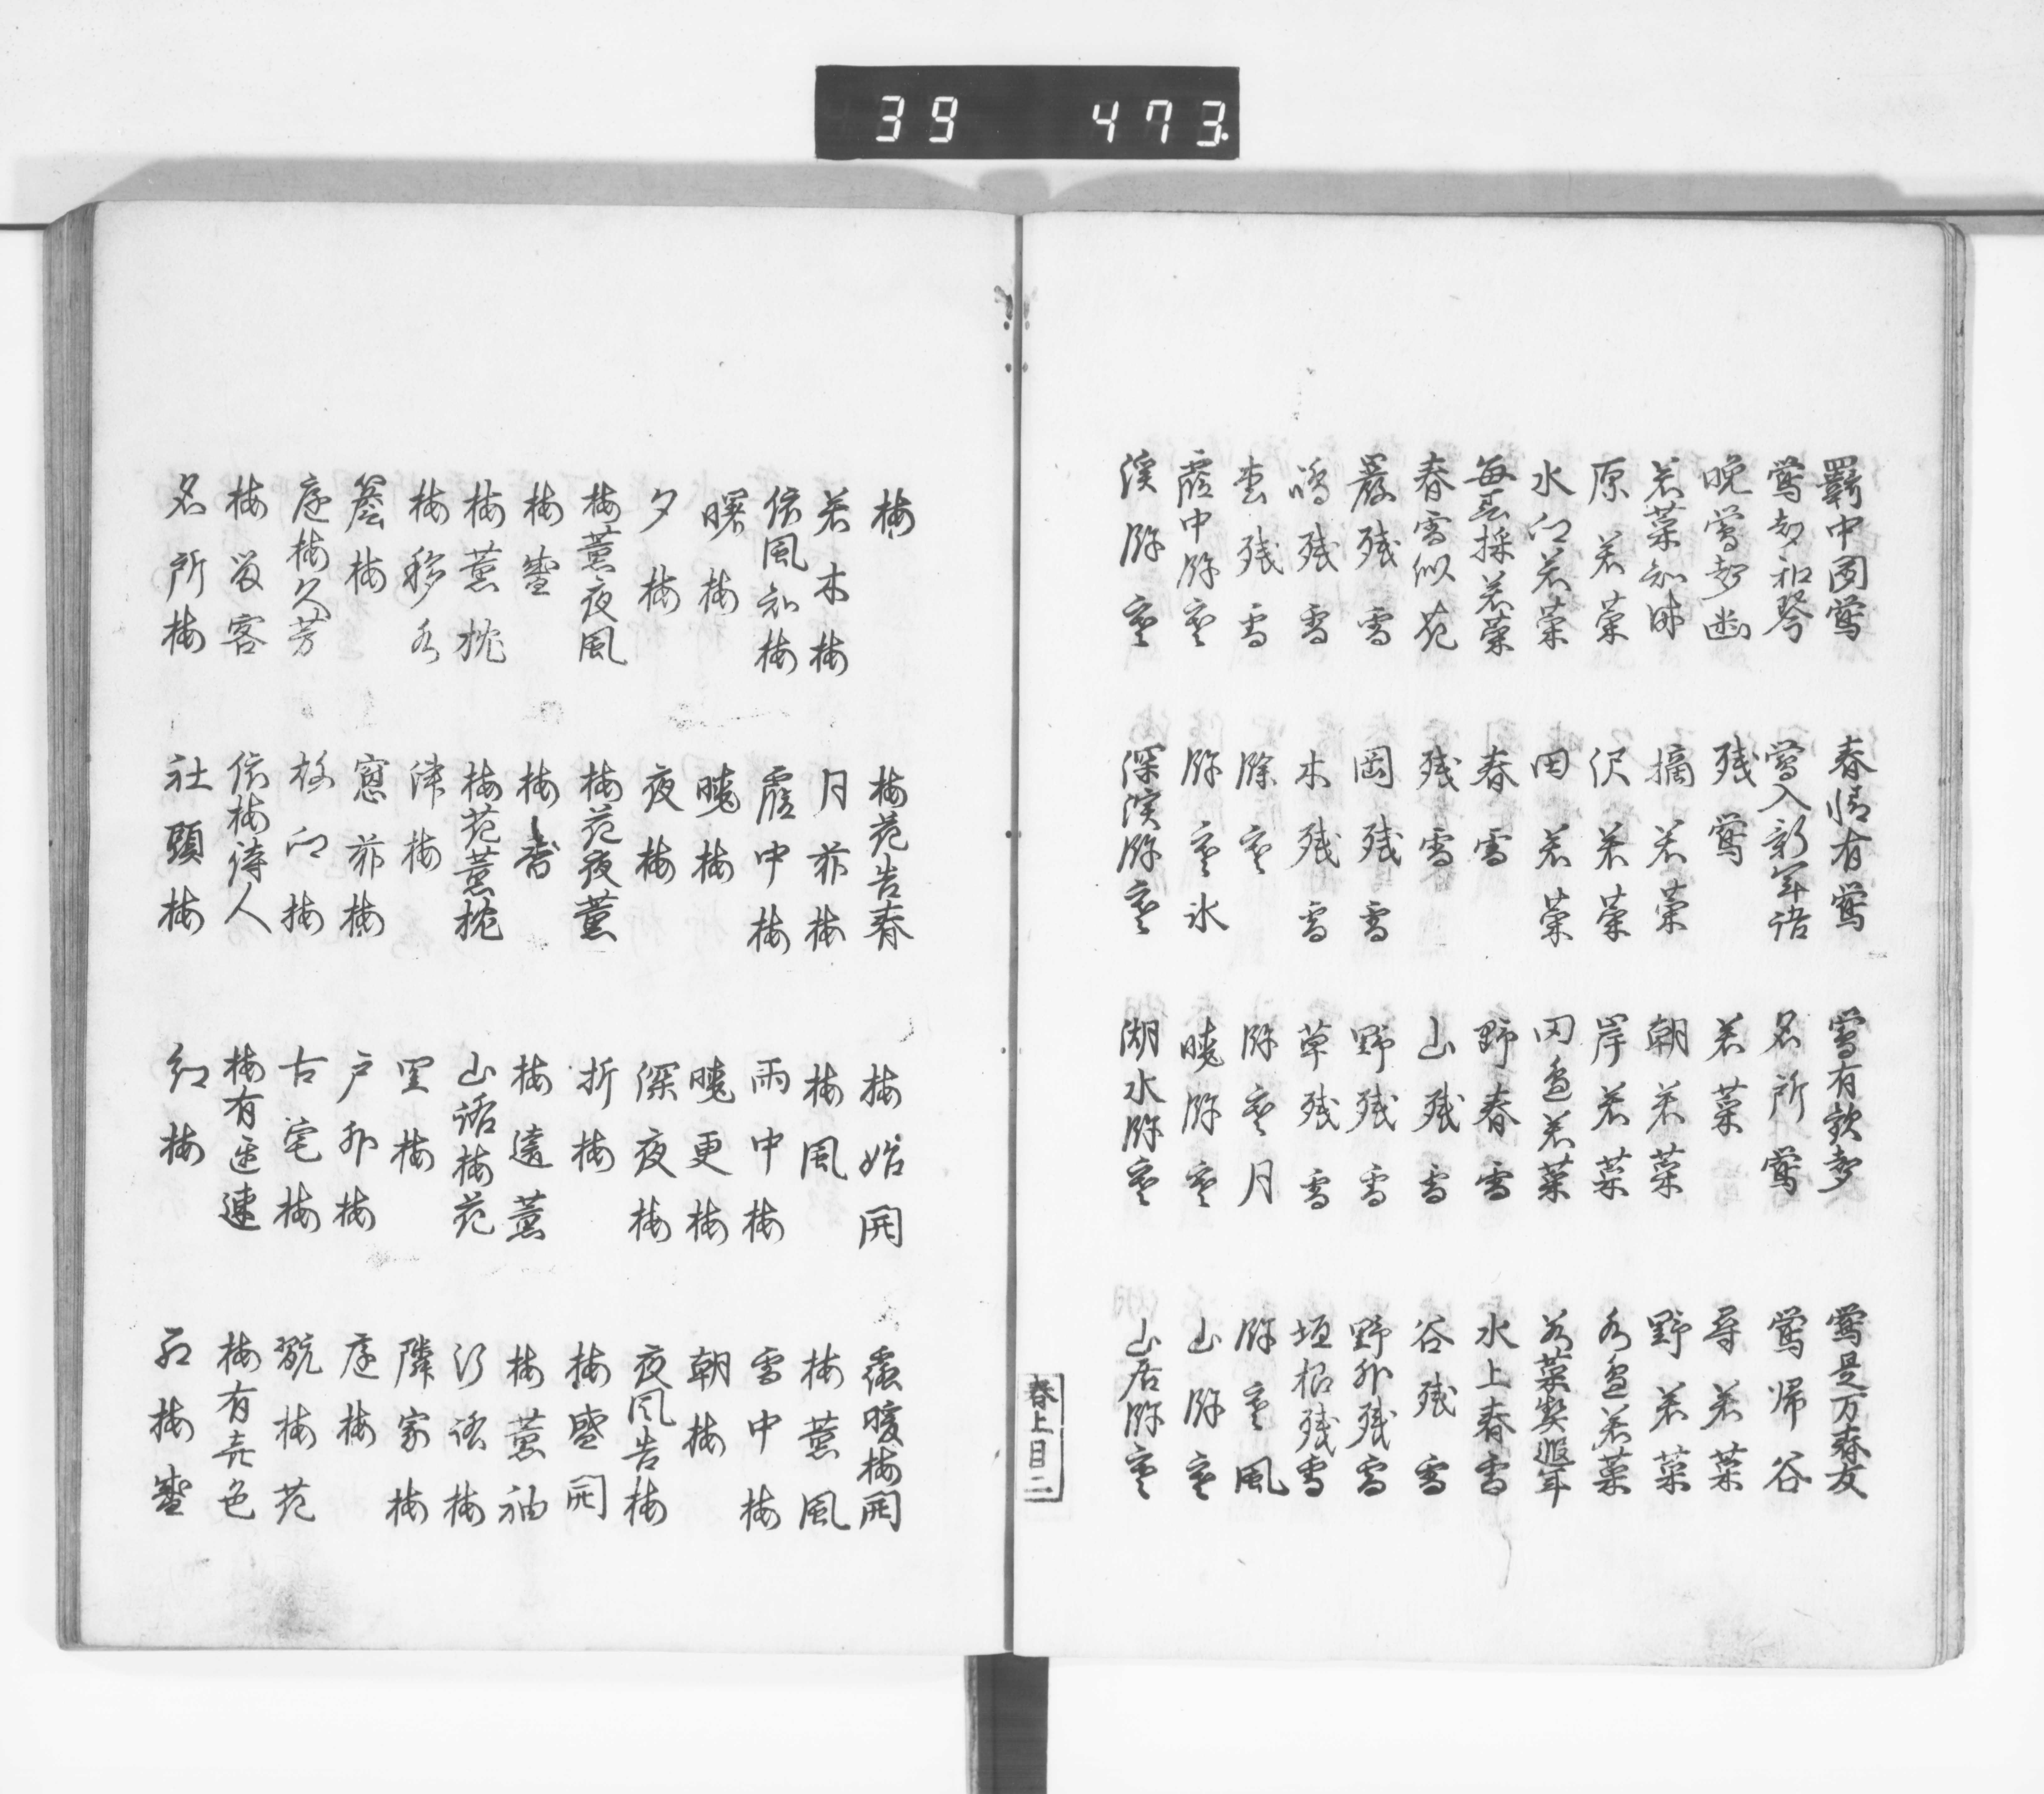 39 473
羇中聞鶯 春情有鶯 鶯有歓声 鶯是万春友
鶯声和琴 鶯入新年語 名所鶯 鶯帰谷
晩鶯声幽 残鶯 若菜 尋若菜
若菜知時 摘若菜 朝若菜 野若菜
原若菜 沢若菜 岸若菜 水辺若菜
水辺若菜 田若菜 田辺若菜 若菜契遐年
毎春採若菜 春雪 野春雪 水上春雪
春雪似花 残雪 山残雪 谷残雪
巌残雪 岡残雪 野残雪 野外残雪
嶋残雪 木残雪 草残雪 垣根残雪
残雪 余寒 余寒月 余寒風
霞中余寒 余寒氷 暁余寒 山余寒
渓余寒 深渓余寒 湖水余寒 山居余寒
春上目二
梅 梅花告春 梅始開 暖梅開
若木梅 月前梅 梅風 梅薫風
依風知梅 霞中梅 雨中梅 雪中梅
曙梅 暁梅 暁更梅 朝梅
夕梅 夜梅 深夜梅 夜風告梅
梅薫夜風 梅花夜薫 折梅 梅盛開
梅 梅香 梅遠薫 梅薫袖
梅薫枕 梅花薫枕 山路梅花 行路梅
梅移水 津梅 里梅 隣家梅
簷梅 窓前梅 戸外梅 庭梅
庭梅久芳 梅 古宅梅 翫梅花
梅留客 依梅待人 梅有遅速 梅有喜色
名所梅 社頭梅 紅梅 梅